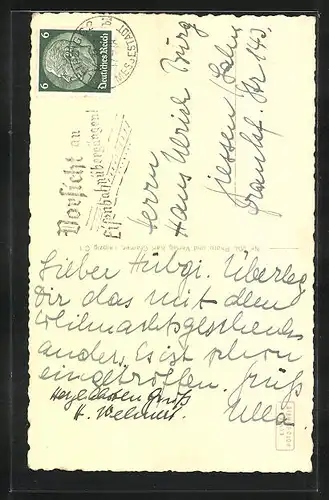 6 Deutsches Reich 6
Vorsicht an
Eisenbahnübergängen!
Herrn
Hans Ulrich Burg
Giessen/Lahn
Frankf. Str 143.
Lieber Hübgi. Überleg
Dir das mit dem
Weihnachtsgeschenk
anders, Es ist schon
eingetroffen. Gruß
Ulla
Herzlichsten Gruß
H. Vellmer